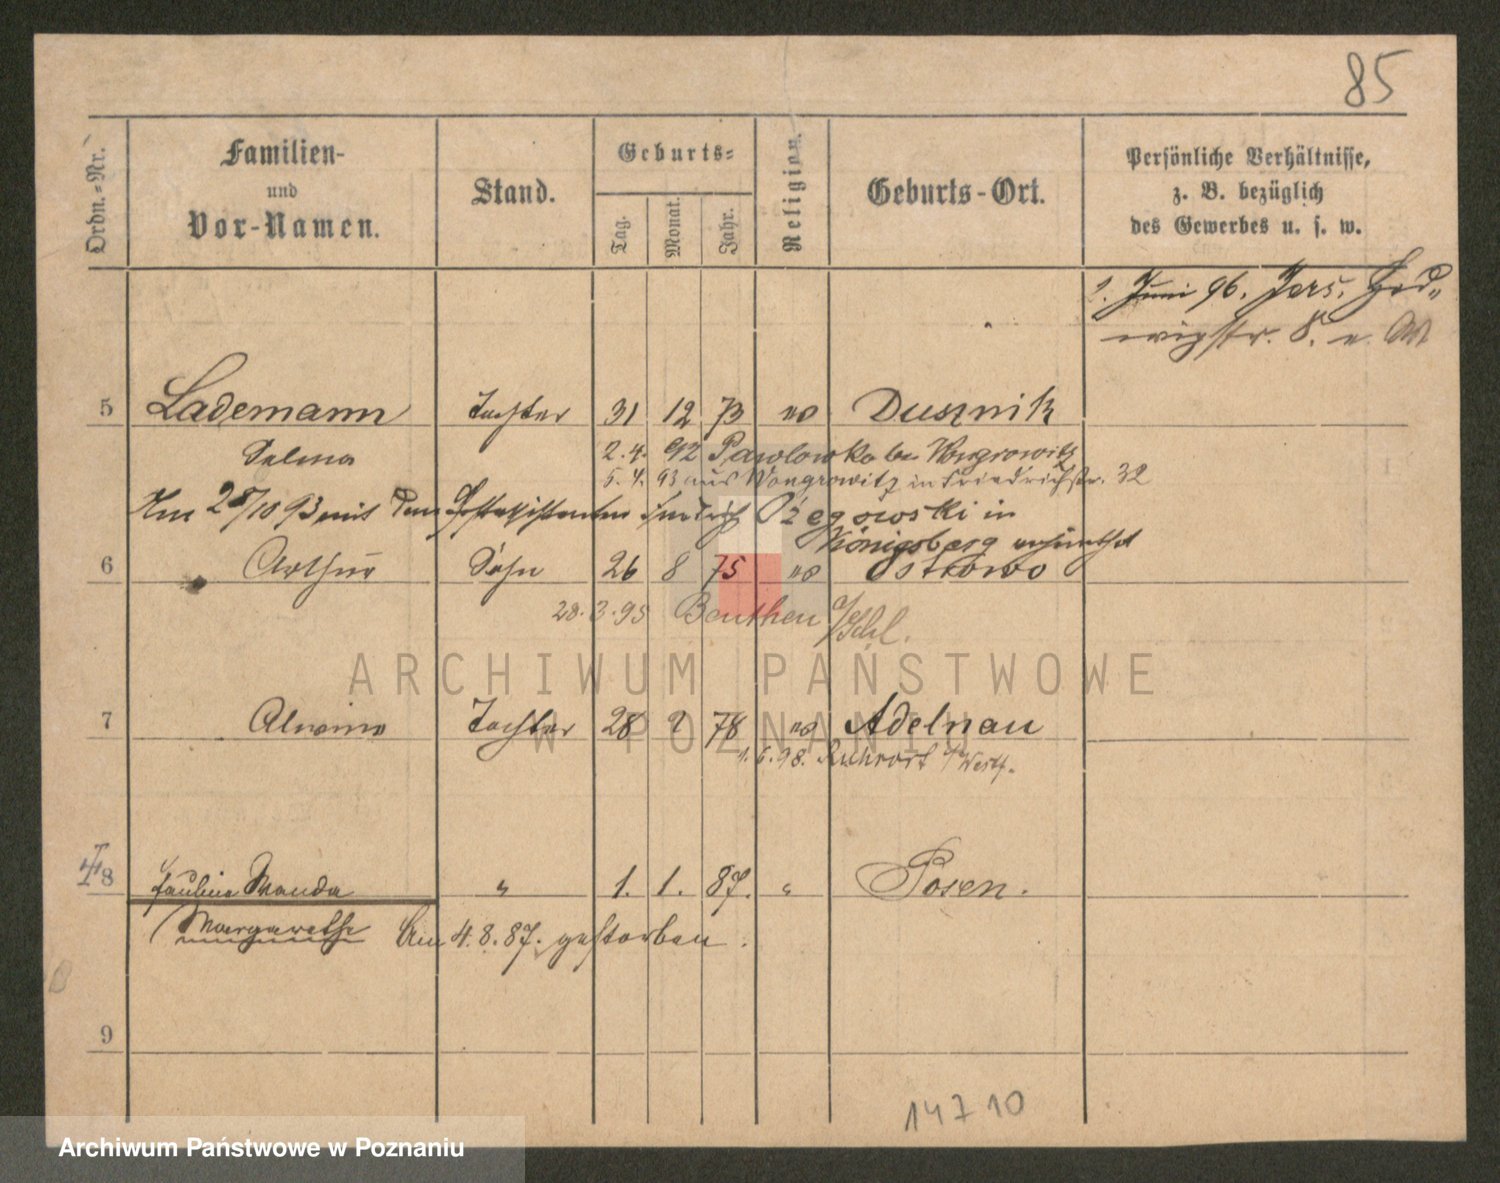 85
Ordn.-Nr.
Familien-
und
Vor-Namen.
Stand.
Geburts-
Tag.
Monat.
Jahr.
Religion.
Geburts-Ort.
Persönliche Verhältnisse,
z. B. bezüglich
des Gewerbes u. s. w.
1. Juni 96. Jers. Hed-
wigstr. 8.
5 Lademann Tochter 31 12 73 Dusznik
Selma 2. 4. 92 Pawlowko bei Wongrowitz
5. 4. 93 aus Wongrowitz in Friedrichstr. 32
Am 28/10 93 mit dem Postassistenten Ożegowski in
Königsberg
6 Arthur Sohn 26 8 75 Ostrowo
28. 3. 95 Beuthen o/Schl.
7 Alwine Tochter 28 2 78 Adelnau
1. 6. 98. Ruhrort i/Westf.
8 Pauline Wanda " 1. 1. 87. " Posen.
Margarethe Am 4. 8. 87. gestorben.
9
14710
ARCHIWUM PAŃSTWOWE
W POZNANIU
Archiwum Państwowe w Poznaniu